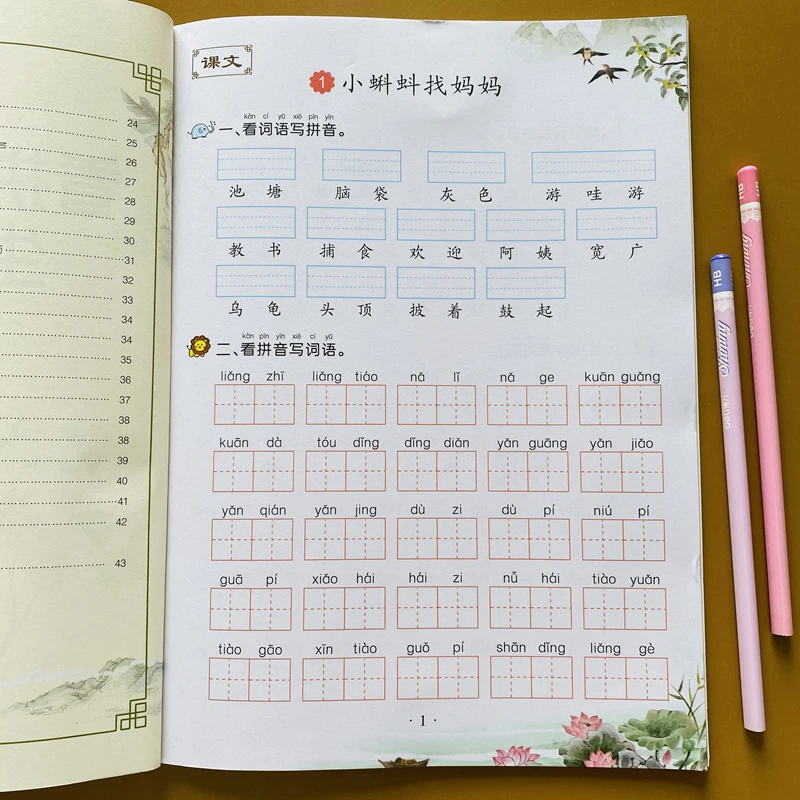 24
25
26
27
28
29
30
31
32
33
34
34
35
36
37
38
38
39
40
41
42
43
课文
1 小蝌蚪找妈妈
kàn cí yǔ xiě pīn yīn
一、看词语写拼音。
池 塘 脑 袋 灰 色 游 哇 游
教 书 捕 食 欢 迎 阿 姨 宽 广
乌 龟 头 顶 披 着 鼓 起
kàn pīn yīn xiě cí yǔ
二、看拼音写词语。
liǎng zhī liǎng tiáo nǎ lǐ nǎ ge kuān guǎng
kuān dà tóu dǐng dǐng diǎn yǎn guāng yǎn jiǎo
yǎn qián yǎn jing dù zi dù pí niú pí
guā pí xiǎo hái hái zi nǚ hái tiào yuǎn
tiào gāo xīn tiào guǒ pí shān dǐng liǎng gè
· 1 ·
HB
HB